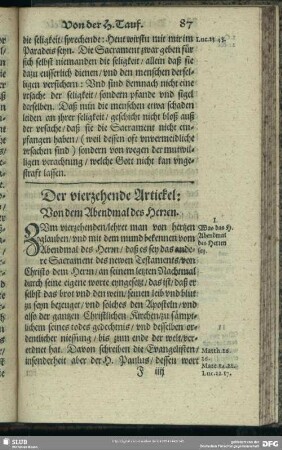 Von der H. Tauf. 87
die seligkeit / sprechende: Heut wirstu mit mir im
Paradeis seyn. Die Sacrament zwar geben für
sich selbst niemanden die seligkeit / allein daß sie
dazu eusserlich dienen / vnd den menschen der seligen
versichern: Vnd sind demnach nicht eine
vrsache der seligkeit / sondern pfande vnd sigel
derselben. Daß nun die menschen etwa schaden
leiden an jhrer seligkeit / geschicht nicht bloß auß
der vrsache / daß sie die Sacrament nicht empfangen
haben / ( weil dessen oft vnvermeidlich
vrsachen sind ) sondern von wegen der mutwilligen
verachtung / welche Gott nicht kan vngestraft
lassen.
Luc. 23. 43.
Der vierzehende Artickel:
Von dem Abendmal des Herren.
ZVm vierzehenden / lehret man von hertzen
zuglauben / vnd mit dem mund bekennen vom
Abendmal des Herrn / daß es sey das andere
Sacrament des newen Testaments / von
Christo dem Herrn / an seinem letzten Nachtmal
durch seine eigene worte eyngesetzt / das ist / daß er
selbst das brod vnd den wein / seinen leib vnd blut
zu seyn bezeuget / vnd solches den Aposteln / vnd
also der gantzen Christlichen Kirchen zu sämptlichem
seines todes gedechtnis / vnd desselben ordentlicher
niessung / bis zum ende der welt / verordnet
hat. Davon schreiben die Evangelisten /
insonderheit aber der H. Paulus / dessen wort
1.
Was das H.
Abendmal
des Herrn
sey.
Matth. 26.
26.
Marc. 14. 22.
Luc. 22. 17.
J iiij
SLUB
DFG